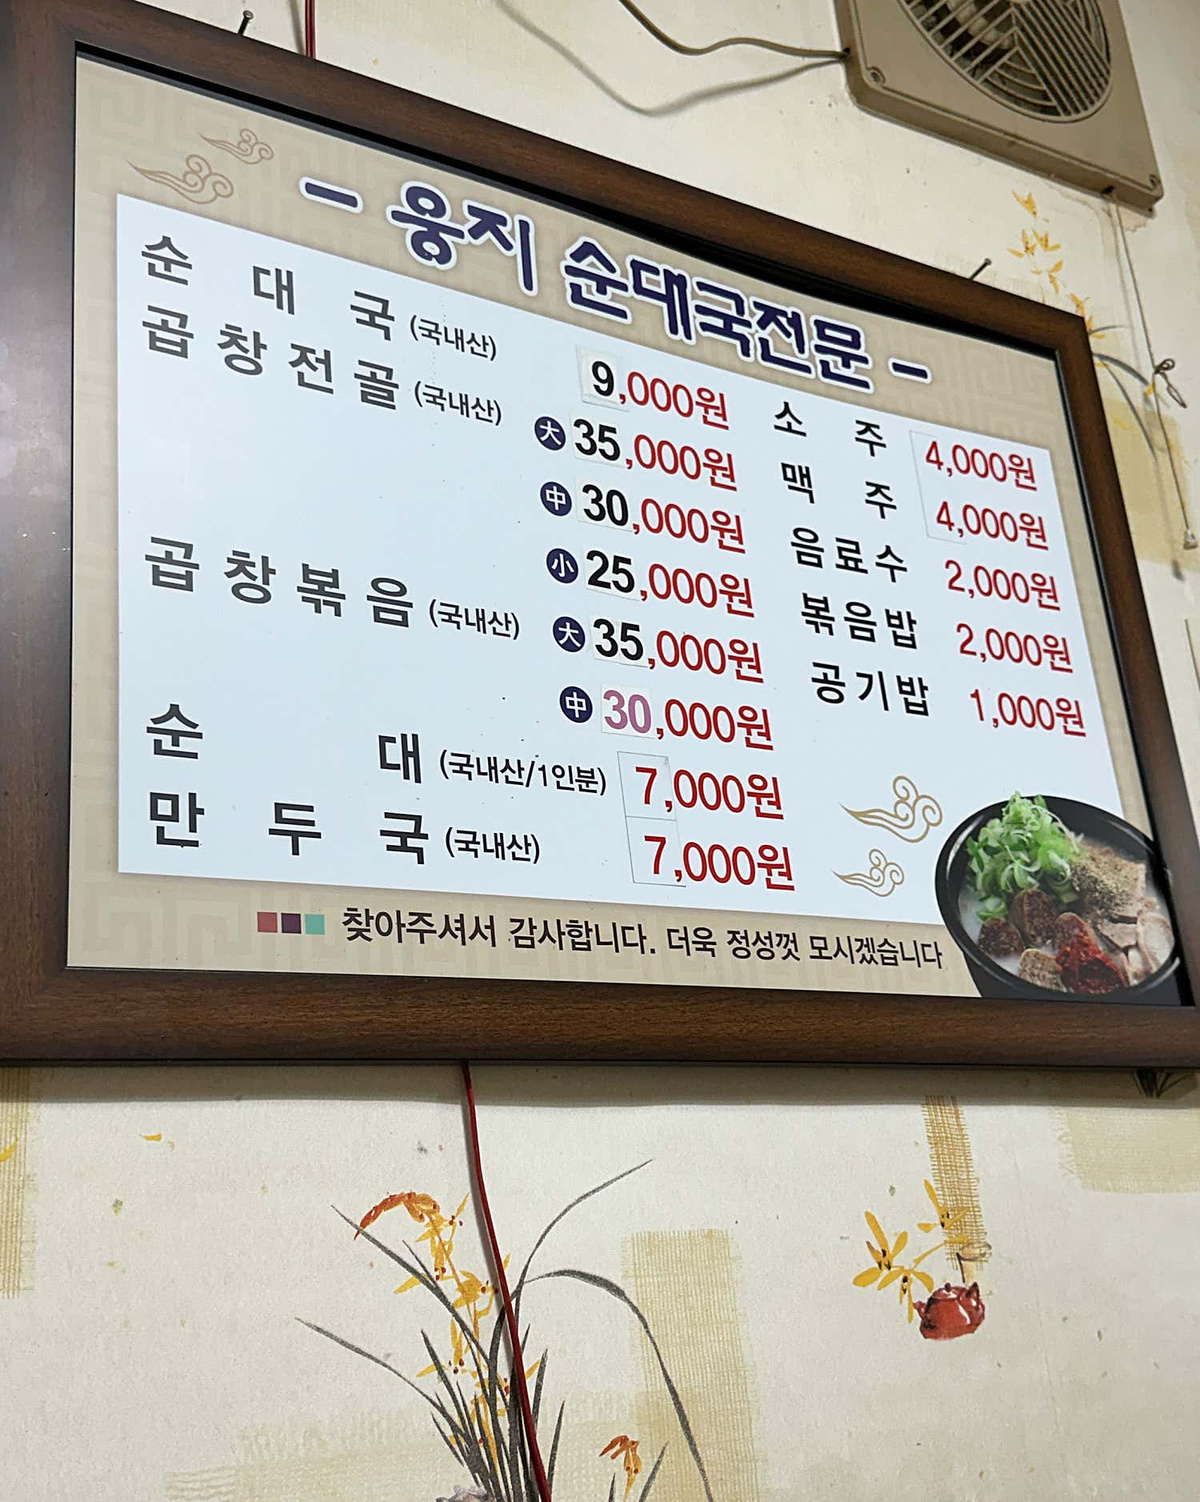 - 웅지 순대국전문 -
순대국 (국내산) 9,000원
곱창전골 (국내산) 大 35,000원
中 30,000원
小 25,000원
곱창볶음 (국내산) 大 35,000원
中 30,000원
순대 (국내산/1인분) 7,000원
만두국 (국내산) 7,000원
소주 4,000원
맥주 4,000원
음료수 2,000원
볶음밥 2,000원
공기밥 1,000원
찾아주셔서 감사합니다. 더욱 정성껏 모시겠습니다